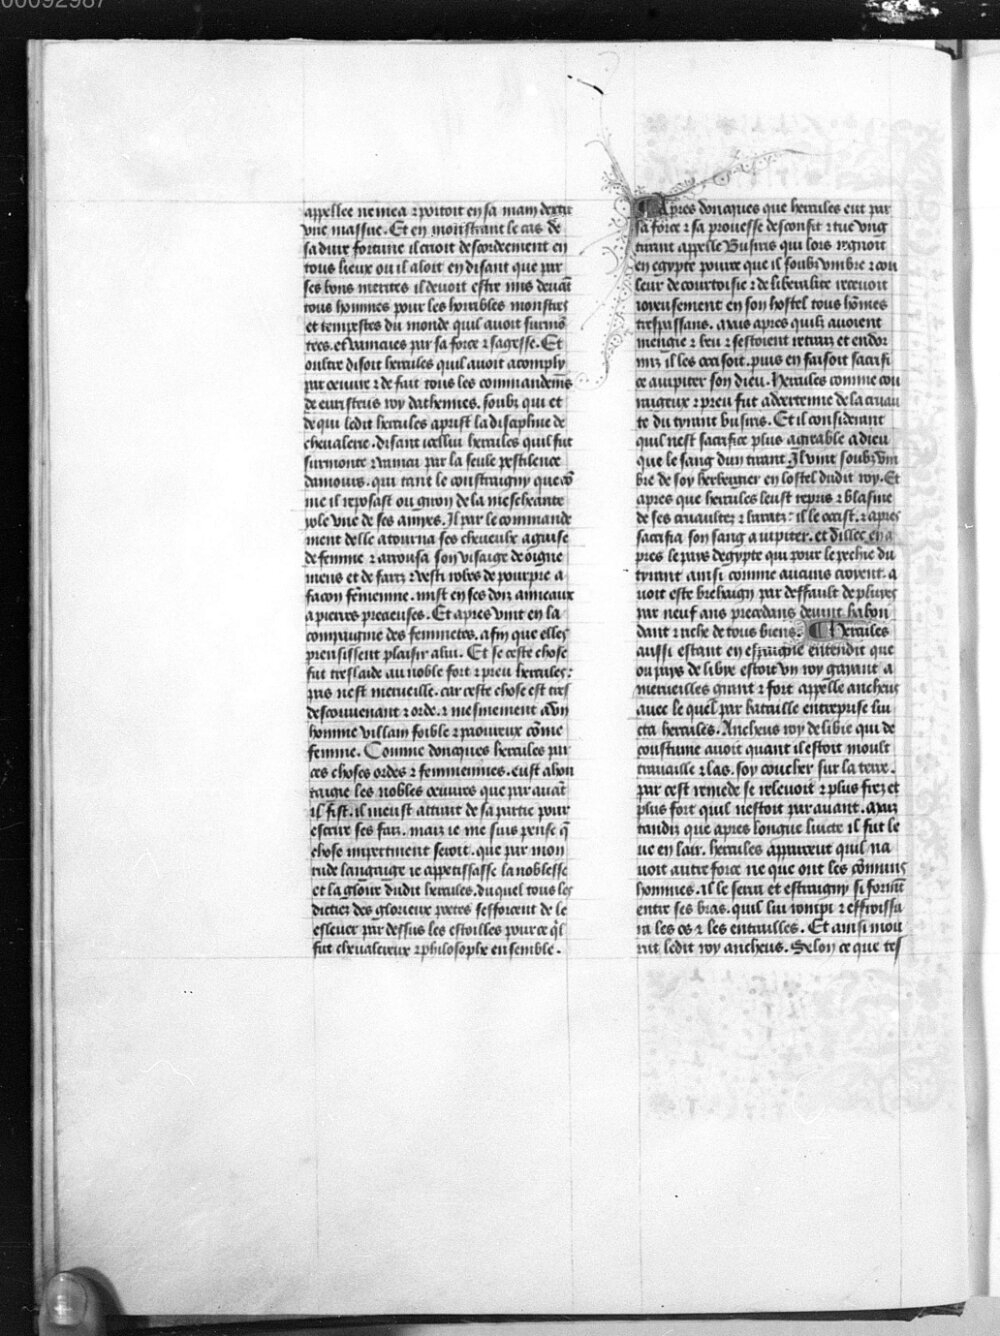 00092987
appellee nemea ⁊ portoit en sa main dextre
vne massue. Et en monstrant le cas de
sa dure fortune il crioit descordeement en
tous lieux ou il aloit en disant que par
ses bons merites il devoit estre mis deuāt
tous hommes pour les horribles monstres
et tempestes du monde quil auoit surmō
tees. et vaincues par sa force ⁊ sagesse. Et
oultre disoit hercules quil auoit acomply
par oeuure ⁊ de fait tous les commandemēs
de euristeus roy dathennes. soubz qui et
de qui ledit hercules aprist la discipline de
cheualerie. disant icellui hercules quil fut
surmonte ⁊ vaincu par la seule pestilence
damours. qui tant le constraigny que cō
me il reposast ou giron de la meschante
yole vne de ses amyes. Il par le commande
ment delle atourna ses cheueulx a guise
de femme ⁊ arrousa son visaige de oigne
mens et de fars ⁊ vesti robes de pourpre a
facon femenine. mist en ses dois anneaux
a pierres precieuses. Et apres vint en la
compaignie des femmetes. afin que elles
preinsissent plaisir a lui. Et se ceste chose
fut tres laide au noble fort ⁊ preu hercules:
pas nest merueille. car ceste chose est tres
descouuenant ⁊ orde. ⁊ mesmement a vn
homme villain foible ⁊ paoureux cōme
femme. Comme doncques hercules par
ces choses ordes ⁊ femenines. eust ahon
taigie les nobles oeuures que par auāt
il fist. il meust attrait de sa partie pour
escrire ses fais. mais ie me suis pense q̄
chose impertinent seroit. que par mon
rude langaige ie appetissasse la noblesse
et la gloire dudit hercules. du quel tous les
dictiez des glorieux poetes sefforcent de le
esleuer par dessus les estoilles pource q̄l
fut cheualereux ⁊ philosophe ensemble.
Apres doncques que hercules eut par
sa force ⁊ sa prouesse desconfit ⁊ tue vng
tirant appelle Busiris qui lors regnoit
en egypte pource que il soubz vmbre ⁊ cou
leur de courtoisie ⁊ de liberalite receuoit
ioyeusement en son hostel tous hōmes
trespassans. mais apres quilz auoient
mengie ⁊ beu ⁊ sestoient retrais et endor
mis il les occisoit. puis en faisoit sacrifi
ce a iupiter son dieu. Hercules comme cou
raigeux ⁊ preu fut aduertenne de la cruau
te du tyrant busiris. Et il considerant
quil nest sacrifice plus agreable a dieu
que le sang dun tirant. Il vint soubz vm
bre de soy herbergier en lostel dudit roy. Et
apres que hercules leust repris ⁊ blasme
de ses cruaultez ⁊ baratz: il le occist. ⁊ apres
sacrifia son sang a iupiter. et dillec en a
pres le pays degypte qui pour le pechie du
tyrant ainsi comme aucuns croyent. a
uoit este brehaign par deffault de pluyes
par neuf ans precedans deuint habon
dant ⁊ riche de tous biens. Hercules
aussi estant en espaigne entendit que
ou pays de libye estoit vn roy gayant a
merueilles grant ⁊ fort appelle ancheus
auec le quel par bataille entreprise luic
ta hercules. Ancheus roy de libie qui de
coustume auoit quant il estoit moult
trauaille ⁊ las. soy coucher sur la terre.
par cest remede se releuoit ⁊ plus frez et
plus fort quil nestoit par auant. mais
tandis que apres longue luicte il fut le
ue en lair. hercules apparceut quil na
uoit autre force ne que ont les cōmuns
hommes. il le serra et estraigny si formēt
entre ses bras. quil lui rompi ⁊ effroissa
ra les os ⁊ les entrailles. Et ainsi mou
rut ledit roy ancheus. Selon ce que tes